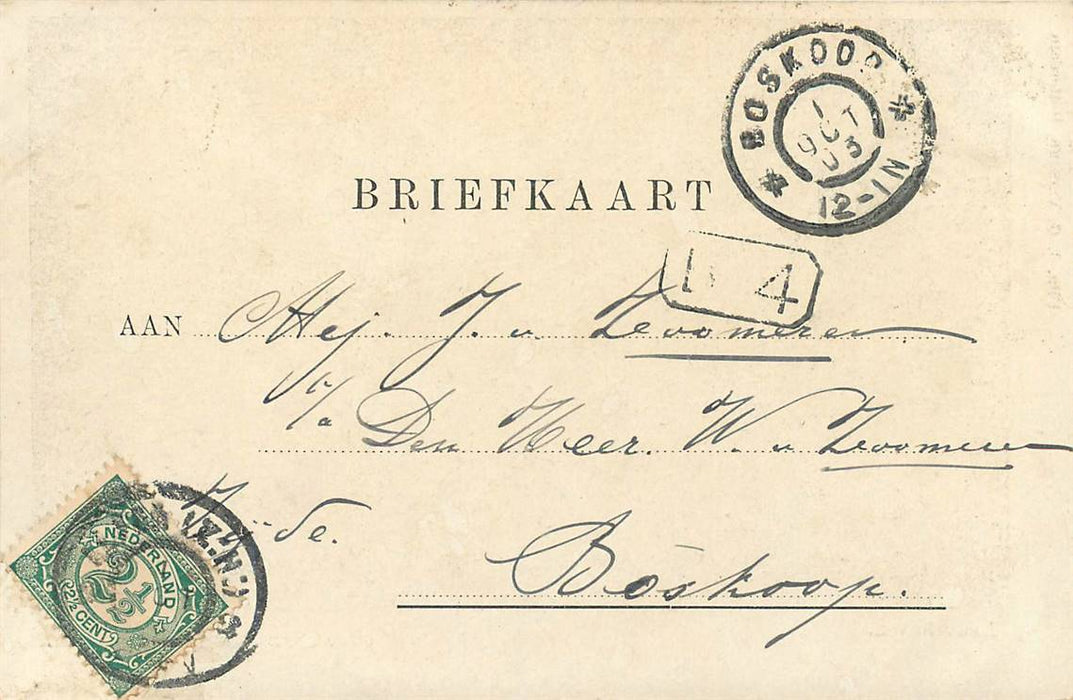 BOSKOOP
1
OCT
03
12-1N
BRIEFKAART
4
AAN Mej. J. v. Zwomeren
p/a Den Heer. W. v Zwomeren
de.
Boskoop.
NEDERLAND
2½
2½ CENT